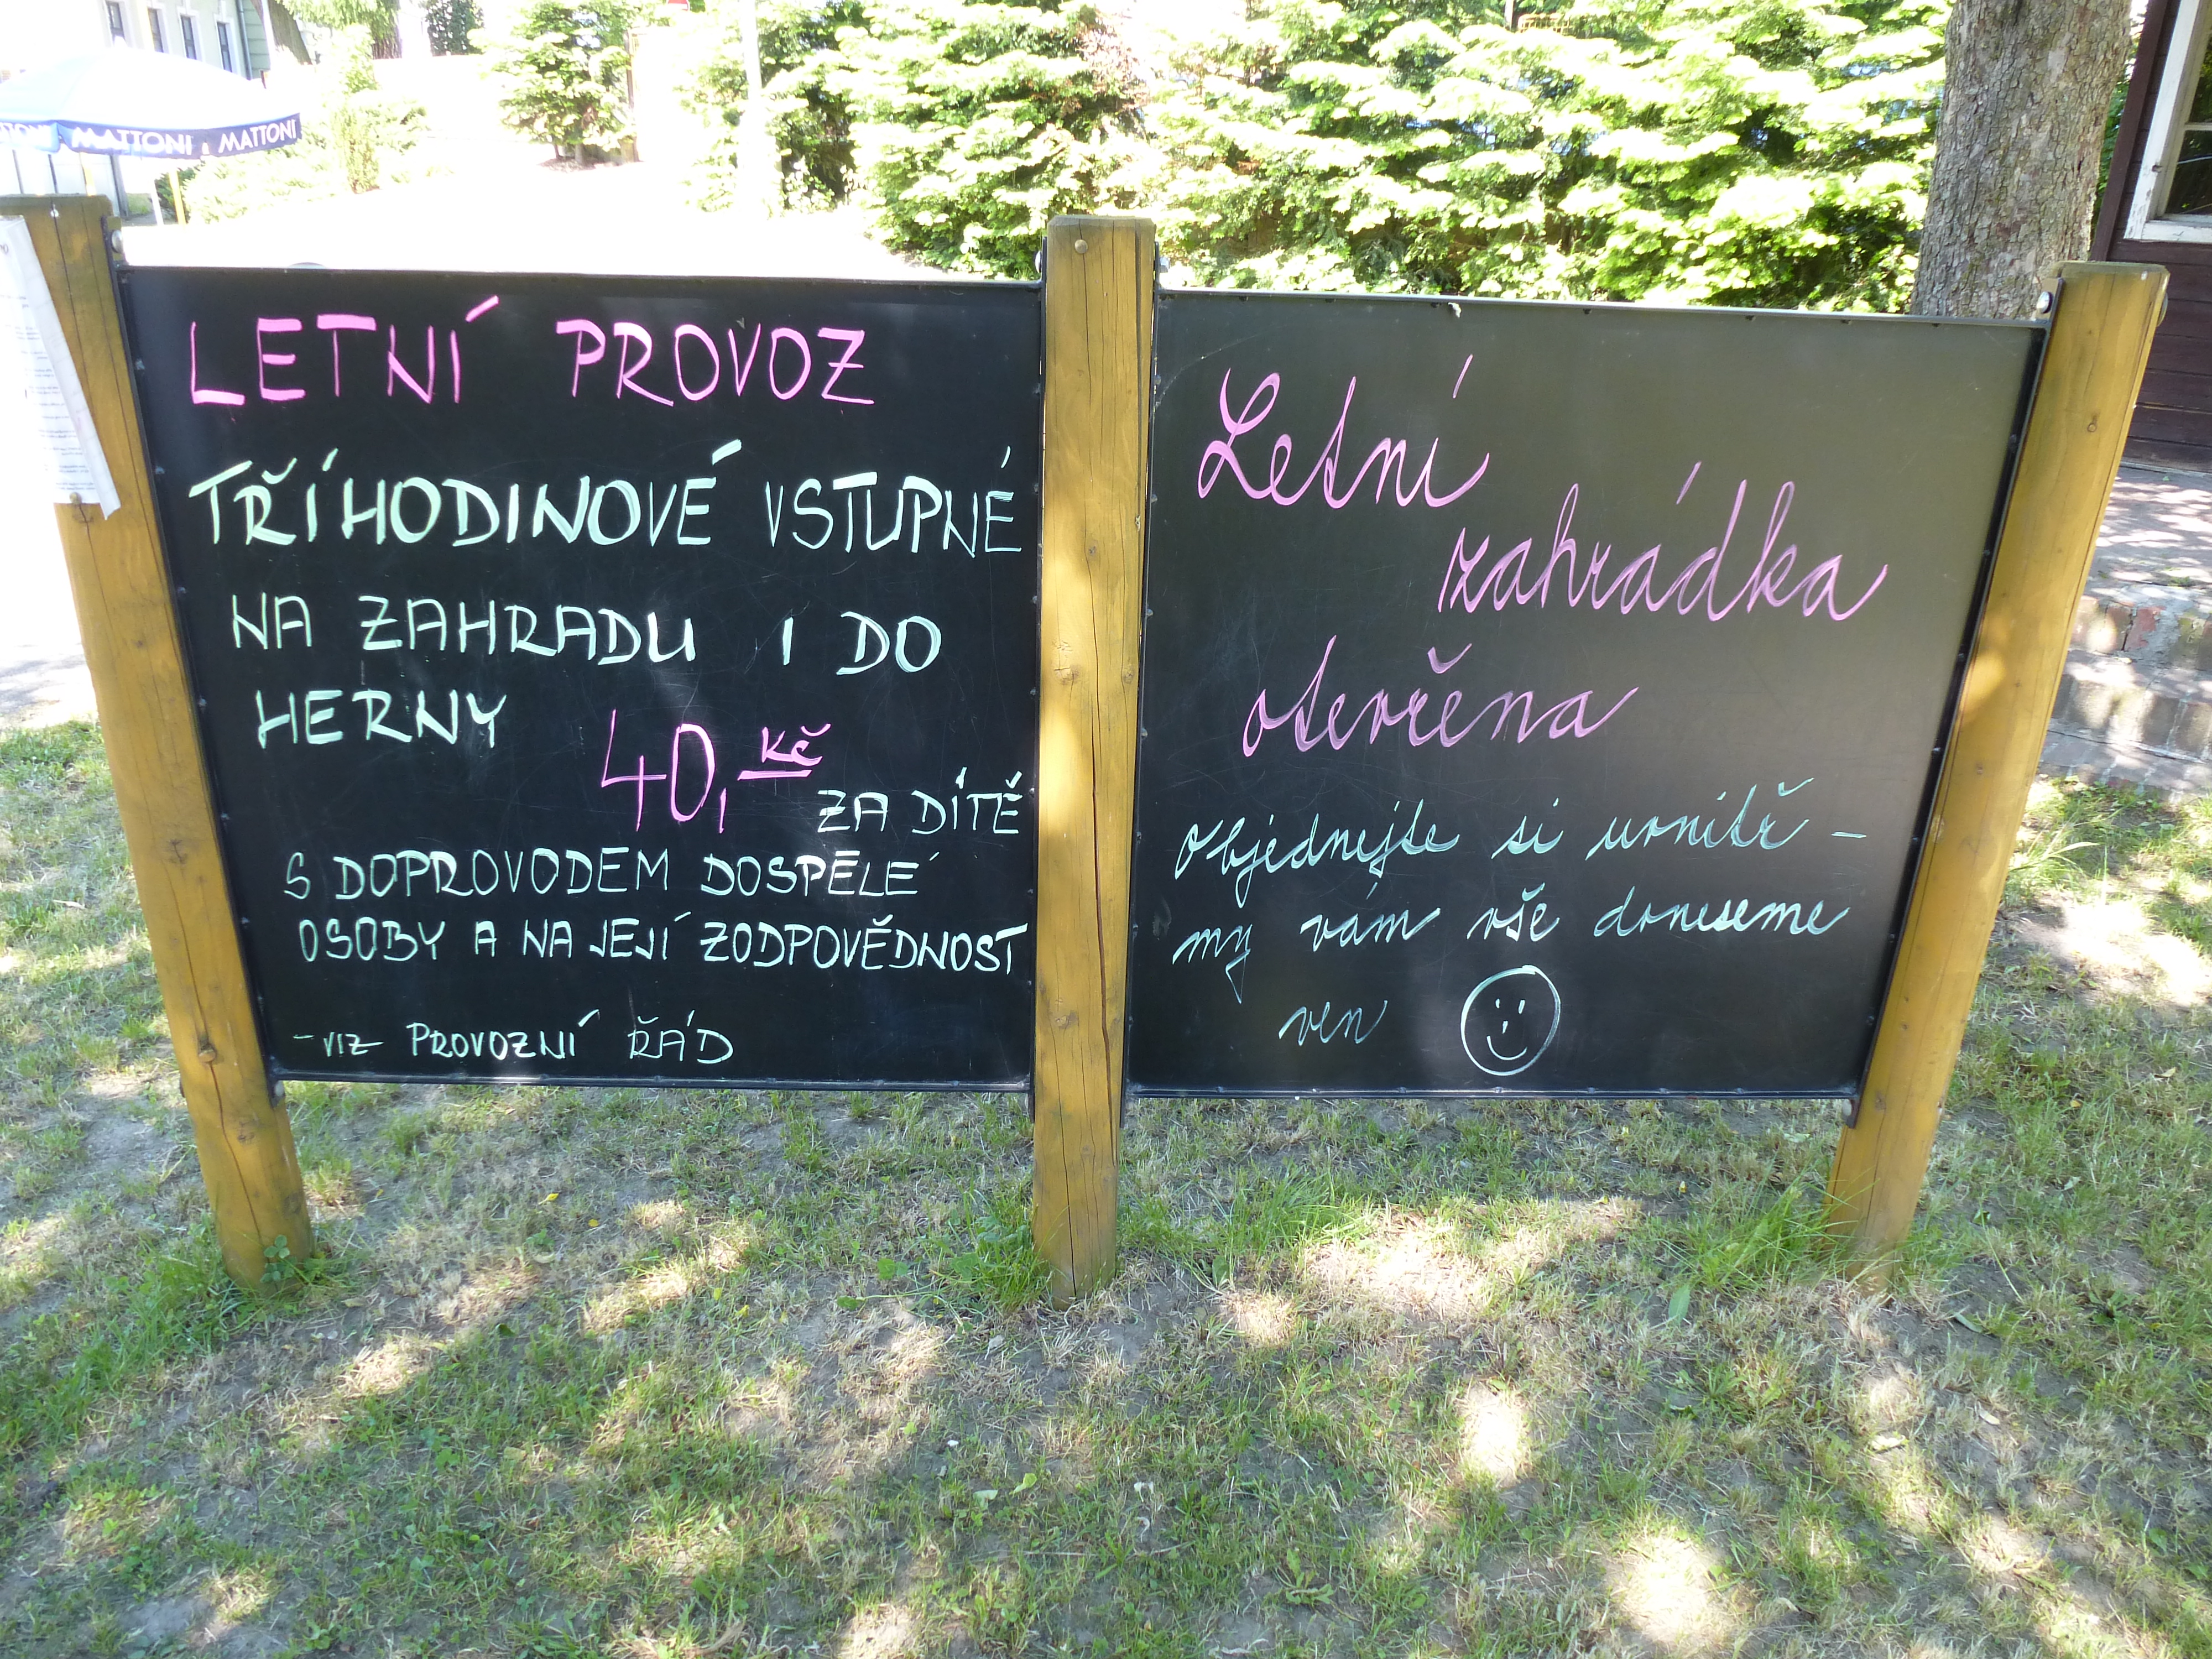 MATTONI MATTONI
LETNÍ PROVOZ
TŘÍHODINOVÉ VSTUPNÉ
NA ZAHRADU I DO
HERNY
40,- Kč
ZA DÍTĚ
S DOPROVODEM DOSPĚLÉ
OSOBY A NA JEJÍ ZODPOVĚDNOST
-VIZ PROVOZNÍ ŘÁD
Letní
zahrádka
otevřena
Objednejte si uvnitř -
my vám vše doneseme
ven